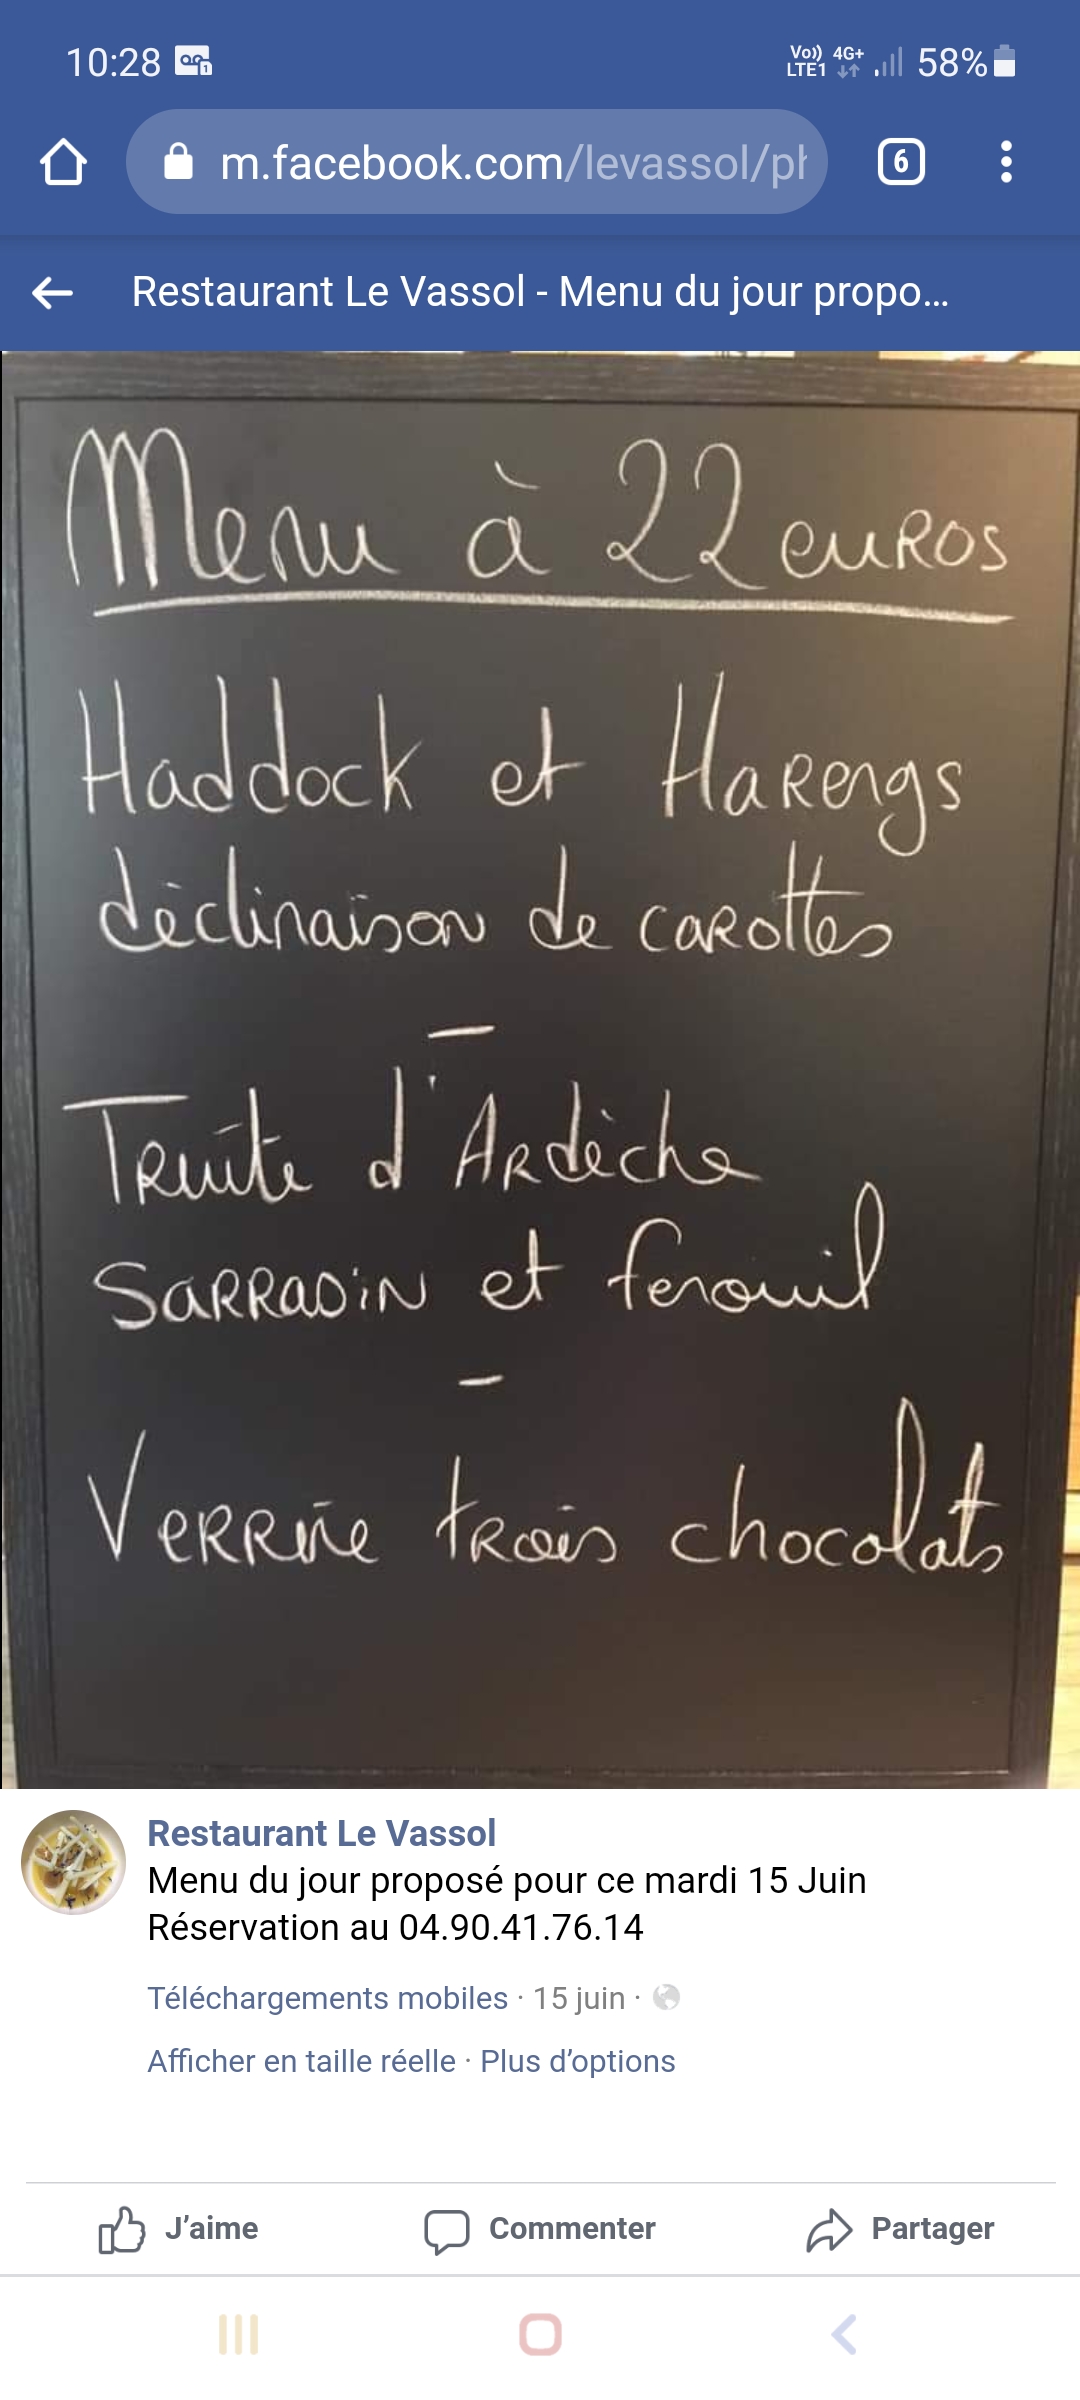 10:28
Vo)) 4G+ 58%
LTE1
m.facebook.com/levassol/ph
6
Restaurant Le Vassol - Menu du jour propo...
Menu à 22 euros
Haddock et Harengs
déclinaison de carottes
—
Truite d'Ardèche
Sarrasin et fenouil
—
Verrine trois chocolats
Restaurant Le Vassol
Menu du jour proposé pour ce mardi 15 Juin
Réservation au 04.90.41.76.14
Téléchargements mobiles · 15 juin ·
Afficher en taille réelle · Plus d’options
J’aime Commenter Partager